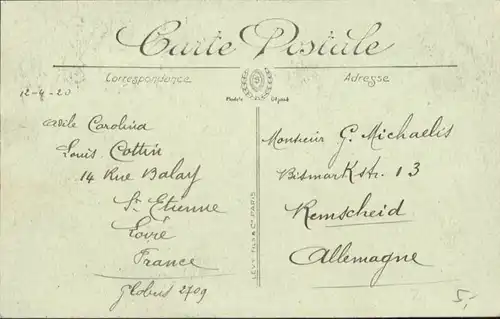 Carte Postale
Correspondance
Adresse
Modèle Déposé
12-4-20
Carolina
Louis Cottin
14 Rue Balay
St Etienne
Loire
France
Globus 2709
LEVY FILS & Cie PARIS
Monsieur G. Michaelis
Bismarkstr. 13
Remscheid
Allemagne
5,-